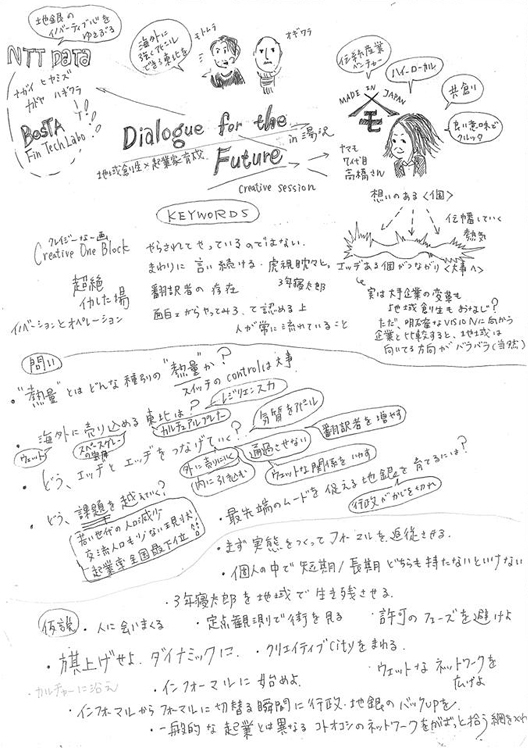 地銀の
イノベーティブ心を
ゆさぶる
NTT DATA
ナガイ ヒヤミズ
カヤ ハギワラ
BeSTA
FinTechLabo
海外に
強くアピール
できる東北を
モトムラ
オギワラ
Dialogue for the
Future
in 湯沢
地域創生×起業家育成
creative session
伝統産業
ベンチャー
ハイローカル
共創り
良い意味で
クルッタ
MADE IN JAPAN
モ
ヤマモ
7代目
高橋さん
想いのある<個>
伝播していく
熱気
エッヂある個がつながり<大事へ>
実は大手企業の変革も
地域創生もおなじ?
ただ、明確なVISIONに向かう
企業と比較すると、地域は
向いてる方向がバラバラ(当然)
KEYWORDS
クレイジーな一画
Creative One Block
超絶
イカした場
イノベーションとオペレーション
やらされてやっているのではない.
まわりに言い続ける・虎視眈々と。
翻訳者の存在
3年寝太郎
面白えからやってみろ、て認める上
人が常に流れていること
問い
・"熱量"とはどんな種別の"熱量"か?
スイッチのcontrolは大事
・海外に売り込める東北は?
レジリエンス力
カルチュアルプレナー
ウェット
・どう、エッヂとエッヂをつなげていく?
気質をアピール
外に売りにいく
内に引き込む
通過させない
翻訳者を増やす
ウェットな関係をいかす
・どう、課題を越えていく?
若い世代の人口減少
交流人口もすくない現状
起業率全国最下位!!
・最先端のムードを捉える地銀を育てるには?
行政がかじを切れ
・まず実態をつくってフォーマルを追従させる.
・個人の中で短期/長期どちらも持たないといけない
・3年寝太郎を地域で生き残させる.
仮説
・人に会いまくる
・定点観測で街を見る
許可のフェーズを避けよ
・旗上げせよ.ダイナミックに.
・クリエイティブcityをまわる.
・カルチャーに沿え
・インフォーマルに始めよ.
ウェットなネットワークを
広げよ
・インフォーマルからフォーマルに切替る瞬間に行政・地銀のバックupを.
・一般的な起業とは異なるコトオコシのネットワークをがばっと拾う網をつくれ